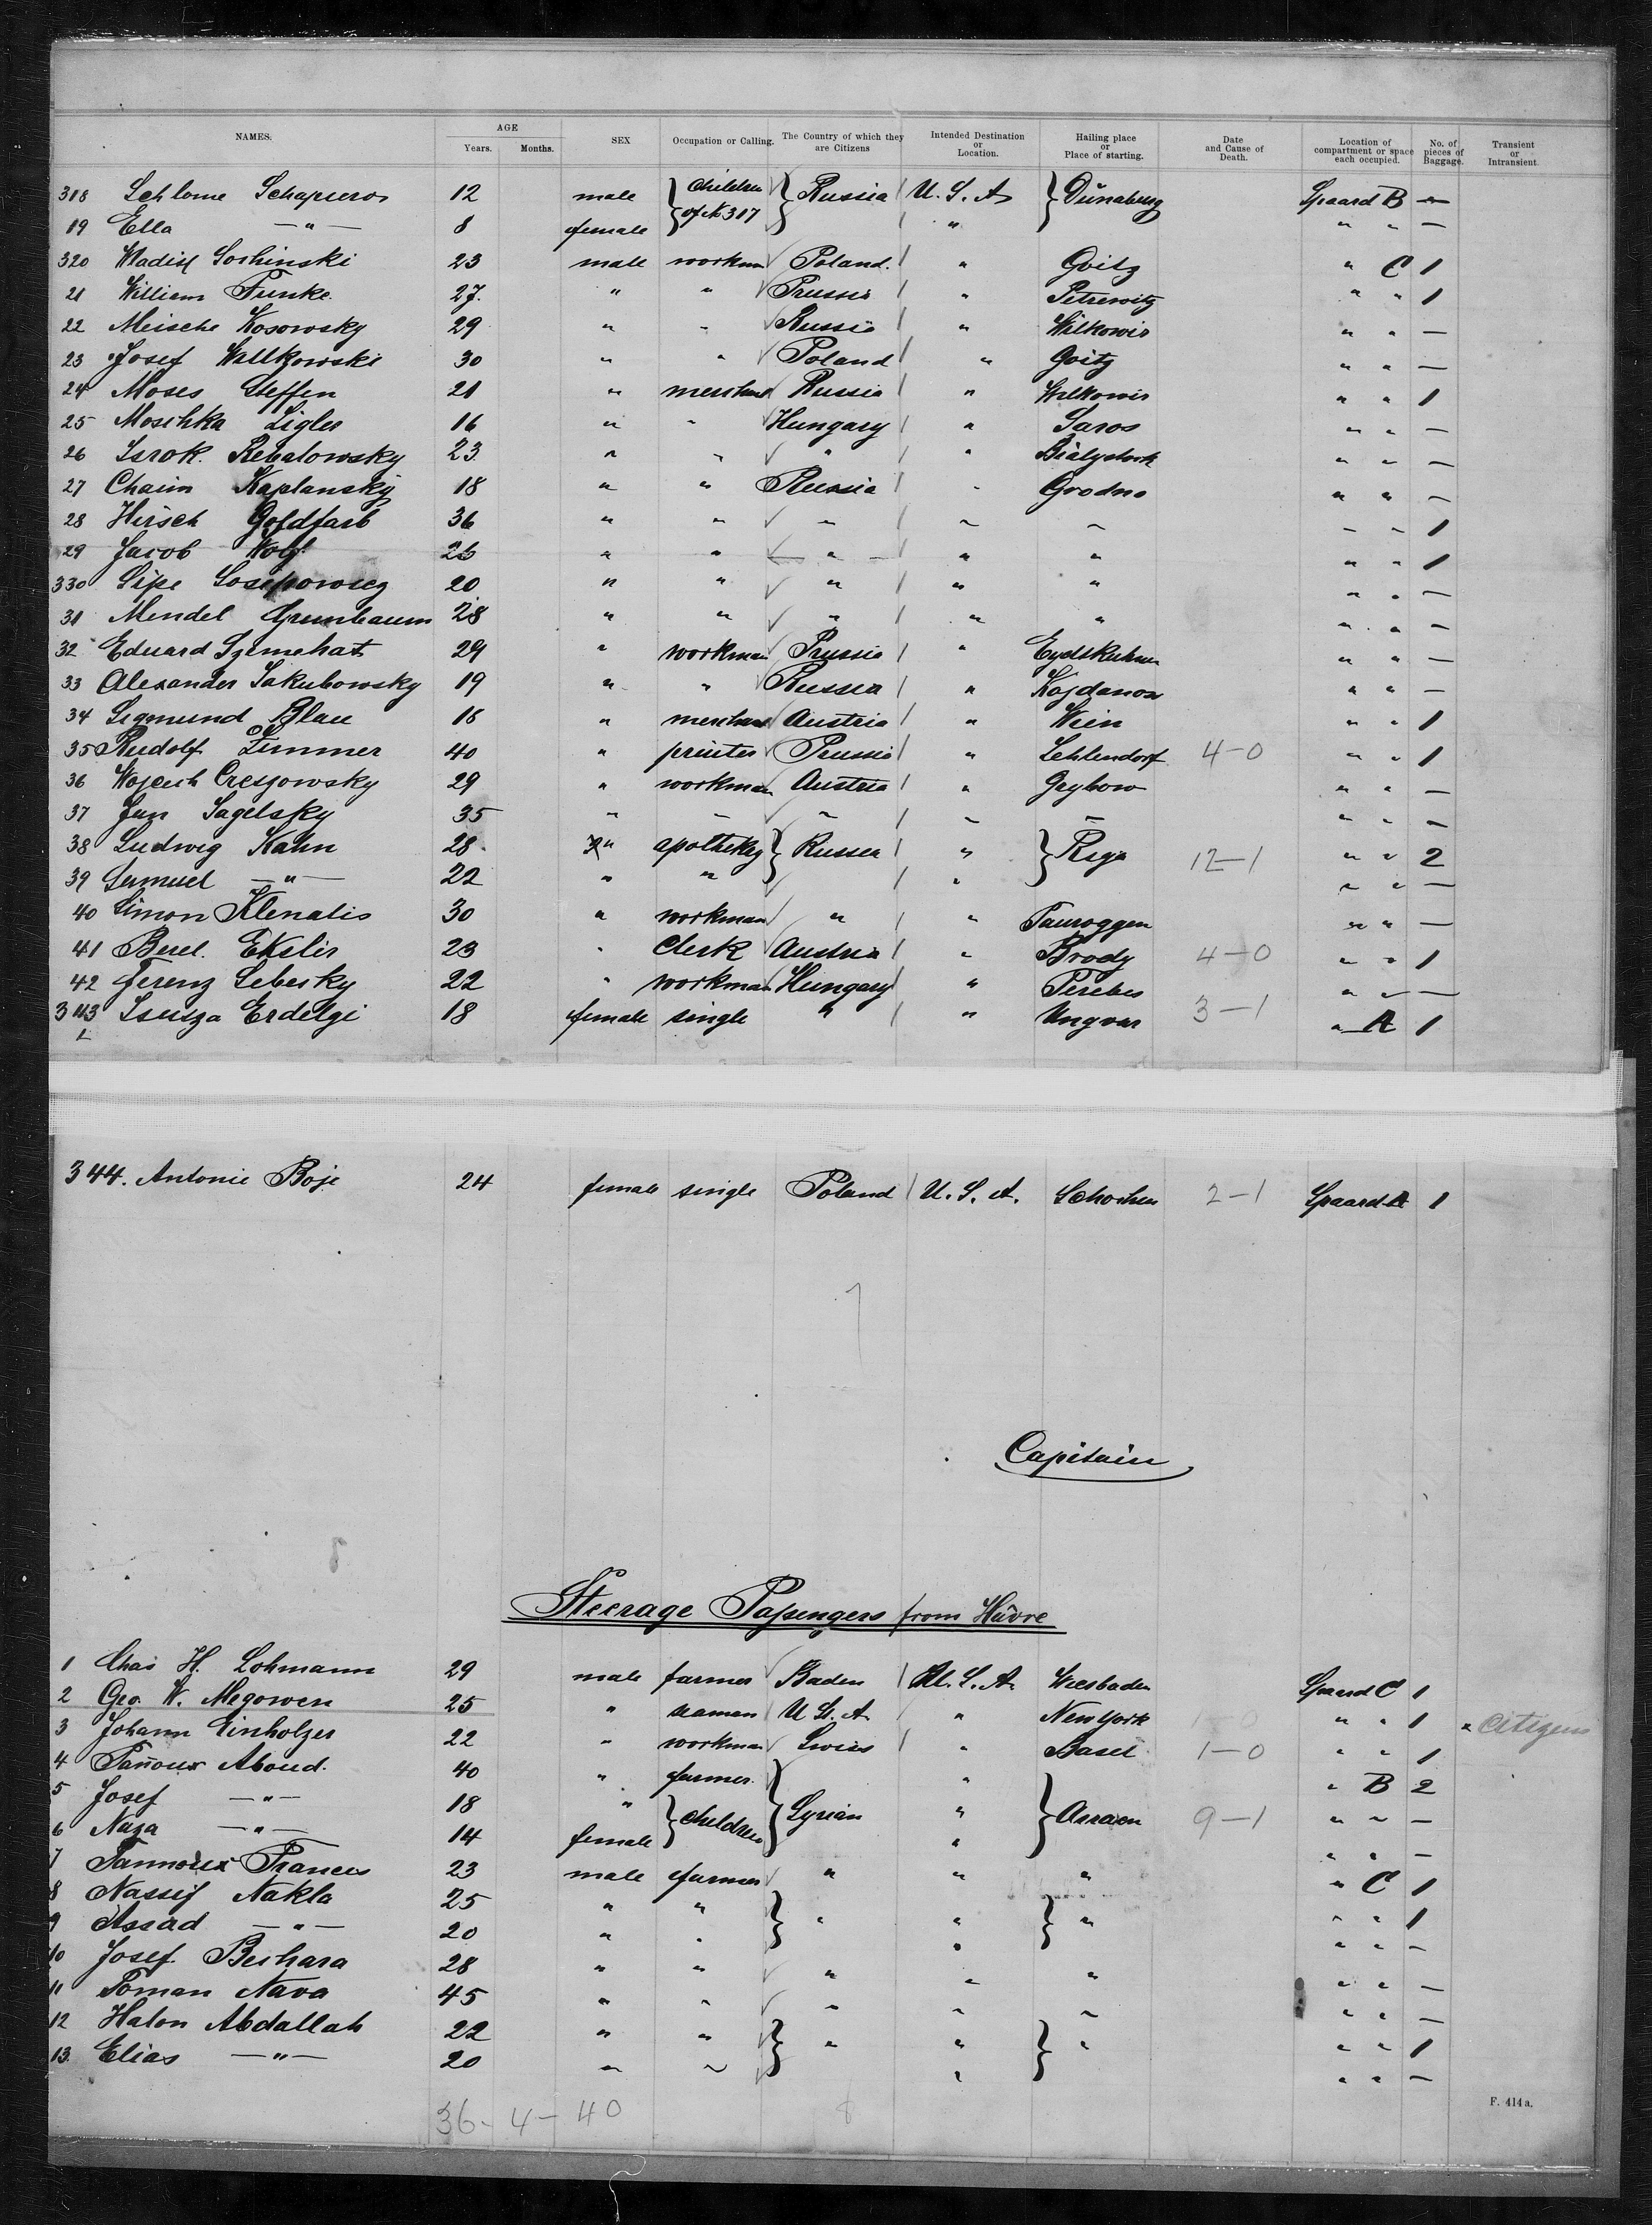 NAMES. AGE Years. Months. SEX Occupation or Calling. The Country of which they are Citizens Intended Destination or Location. Hailing place or Place of starting. Date and Cause of Death. Location of compartment or space each occupied. No. of pieces of Baggage. Transient or Intransient.
318 Schlome Schapiero 12 male children of N 317 Russia U. S. A. Dünaburg Spaard B —
19 Ella —"— 8 female " " " —
320 Wladisl Sochinski 23 male workman Poland. " Goitz " C 1
21 William Funke. 27. " " Prussia " Petrewitz " " 1
22 Meische Kosowsky 29 " " Russia " Wilkowir " " —
23 Josef Willkowski 30 " " Poland " Goitz " " —
24 Moses Steffen 21 " merchant Russia " Wilkowir " " 1
25 Moschka Zigler 16 " " Hungary " Saros " " —
26 Isrok. Rebalowsky 23 " " " " Bialystock " " —
27 Chaim Kaplansky 18 " " Russia " Grodno " " —
28 Hirsch Goldfarb 36 " " " " " " " 1
29 Jacob Wolf 26 " " " " " " " 1
330 Sipe 20 " " " " " " " —
31 Mendel Grunbaum 28 " " " " " " " —
32 Eduard Szemehat 29 " workman Prussia " Eydtkuhnen " " —
33 Alexander Jakubowsky 19 " " Russia " Kojdanow " " —
34 Sigmund Blau 18 " merchant Austria " Wien " " 1
35 Rudolf Zimmer 40 " printer Prussia " Lehlendorf 4-0 " " 1
36 Wojcech Creszowsky 29 " workman Austria " Grybow " " —
37 Jan Sagelsky 35 " " " " " " " —
38 Ludwig Kahn 28 " apotheker Russia " Riga 12-1 " " 2
39 Samuel —"— 22 " " " " " —
40 Simon Klenatis 30 " workman " " Tauroggen " " —
41 Berel. Ekslir 23 " Clerk Austria " Brody 4-0 " " 1
42 Ferenz Lebesky 22 " workman Hungary " Terebes " " —
343 Isusza Erdelgi 18 female single " " Ungvar 3-1 " A 1
344. Antonie Boje 24 female single Poland U. S. A. Schochen 2-1 Spaard A 1
Capitain
Steerage Passengers from Hâvre
1 Chas H. Lohmann 29 male farmer Baden U. S. A. Wiesbaden Spaard C 1
2 Geo. W. Megowen 25 " seaman U. S. A. " New York 1-0 " " 1 " Citizens
3 Johann Einholzer 22 " workman Swiss " Basel 1-0 " " 1
4 Tanous Aboud. 40 " farmer. Syrian " Asraon 9-1 " B 2
5 Josef —"— 18 " children " " " —
6 Naza —"— 14 female " " " —
7 Tannous Frances 23 male farmer " " " " C 1
8 Nassif Nakla 25 " " " " " " " 1
9 Assad —"— 20 " " " " " —
10 Josef Beshara 28 " " " " " " " —
11 Toman Nava 45 " " " " " " " —
12 Halon Abdallah 22 " " " " " " " 1
13. Elias —"— 20 " " " " " —
36- 4- 40
F. 414a.